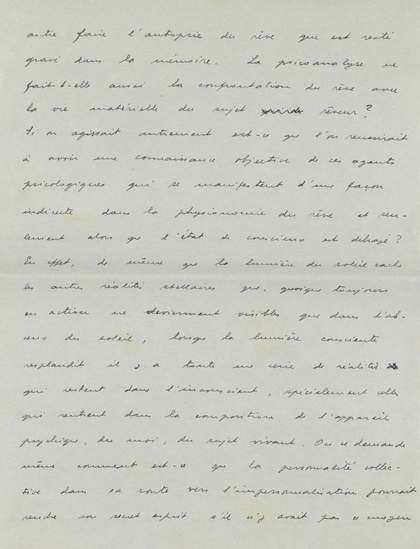 autre faire l'autopsie du rêve qui est resté
gravé dans la mémoire. La psicoanalyse ne
fait-t-elle aussi la confrontation du rêve avec
la vie matérielle du sujet rêveur?
Si on agissait autrement est-ce que l'on reussirait
à avoir une connaissance objective de ces agents
psicologiques qui se manifestent d'une façon
indirecte dans la physionomie du rêve et seu-
lement alors que l'état de conscience est
En effet, de même que la lumière du soleil cache
les autres réalité stellaires que, quoique toujours
en active ne deviennent visibles que dans l'ab-
sens du soleil, lorsque la lumière consciente
resplandit il y a toute une serie de réalités
qui restent dans l'inconscient, spécialement celles
qui rentrent dans la composition de l'appareil
psychique, du moi, du sujet vivant. On se demande
même comment est-ce que la personnalité collec-
tive dans sa route vers l'impersonnalisation pourrait
rendre son secret esprit s'il n'y avait pas ce moyen